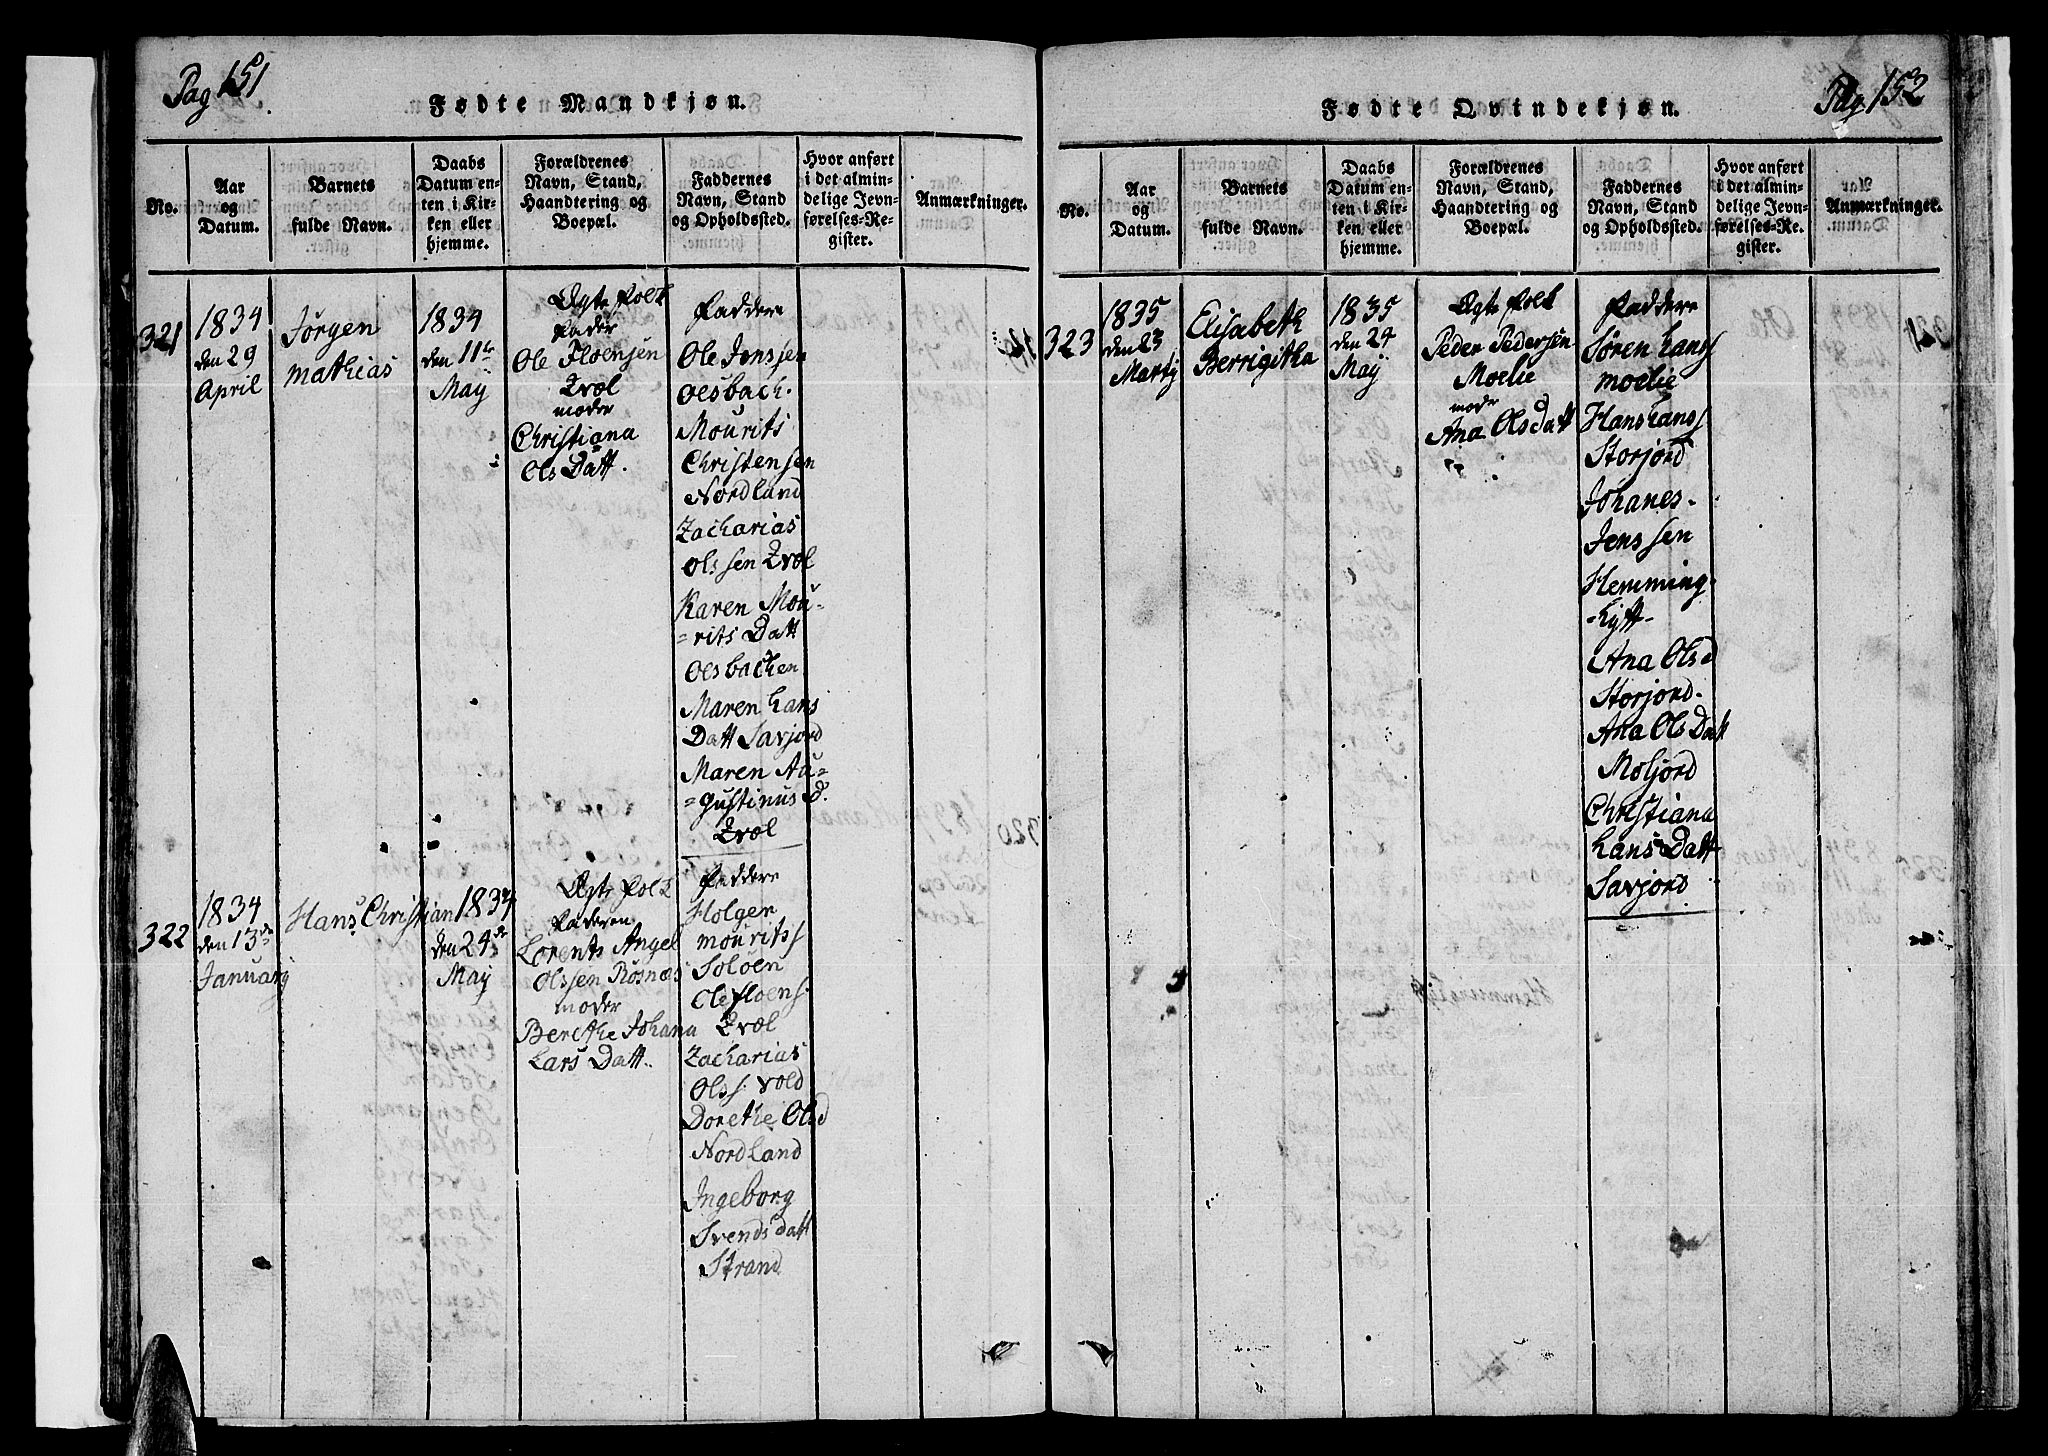 Pag 151
Fødte Mandkjøn.
No.
Aar
og
Datum.
Barnets
fulde Navn.
Daabs
Datum en-
ten i Kir-
ken eller
hjemme.
Forældrenes
Navn, Stand,
Haandtering og
Boepæl.
Faddernes
Navn, Stand
og Opholdssted.
Hvor anført
i det almin-
delige Jevn-
førelses-Re-
gister.
Anmærkninger.
321
1834
den 29
April
Jørgen
mathias
1834
den 11te
May
Ægte Folk
Fader
Ole Floensen
Evæl
moder
Christiana
Ols Datt.
Faddere
Ole Jenssen
Oesbach.
Mourits
Christensen
Nordland
Zacharias
Olssen Evæl
Karen Mou-
=rits Datt
Oesbachen
Maren Hans
Datt Savjord
Maren Au=
=gustinus D.
Evæl
322
1834
den 13de
January
Hans Christian
1834
den 24de
May
Ægte Folk
Faderen
Lorents Angel
Olssen Røsnæs
moder
Berethe Johana
Lars Datt.
Faddere
Holgen
mouritss
Soløen
Ole Floens.
Evæl
Zacharias
Olss. vold
Dorethe Olsd
Nordland
Ingeborg
Svends datt
Strand
Pag. 152
Fødte Qvindekjøn.
No.
Aar
og
Datum.
Barnets
fulde Navn.
Daabs
Datum en-
ten i Kir-
ken eller
hjemme.
Forældrenes
Navn, Stand,
Haandtering og
Boepæl.
Faddernes
Navn, Stand
og Opholdssted.
Hvor anført
i det almin-
delige Jevn-
førelses-Re-
gister.
Anmærkninger.
323
1835
den 23
Martÿ
Elisabeth
Berrigitha
1835
den 24
May
Ægte Folk
Peder Pedersen
Moelie
modr
Ana Olsdatt
Faddere
Søren Hanss
moelie
Hans Hanss
Storjord
Johanes-
Jenssen
Hemming-
-hytt-
Ana Olsd
Storjord.
Ana Ols Datt
Moljord
Christiana
Hans Datt
Savjord